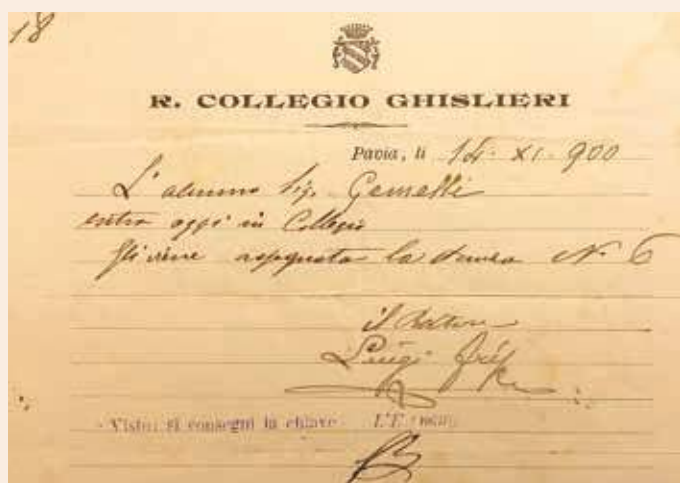 18
R. COLLEGIO GHISLIERI
Pavia, li 14. XI. 900
L'alunno Sig. Gemelli
entra oggi in Collegio
gli viene assegnata la N. 6
il Rettore
Luigi
Visto: si consegni la chiave L'E